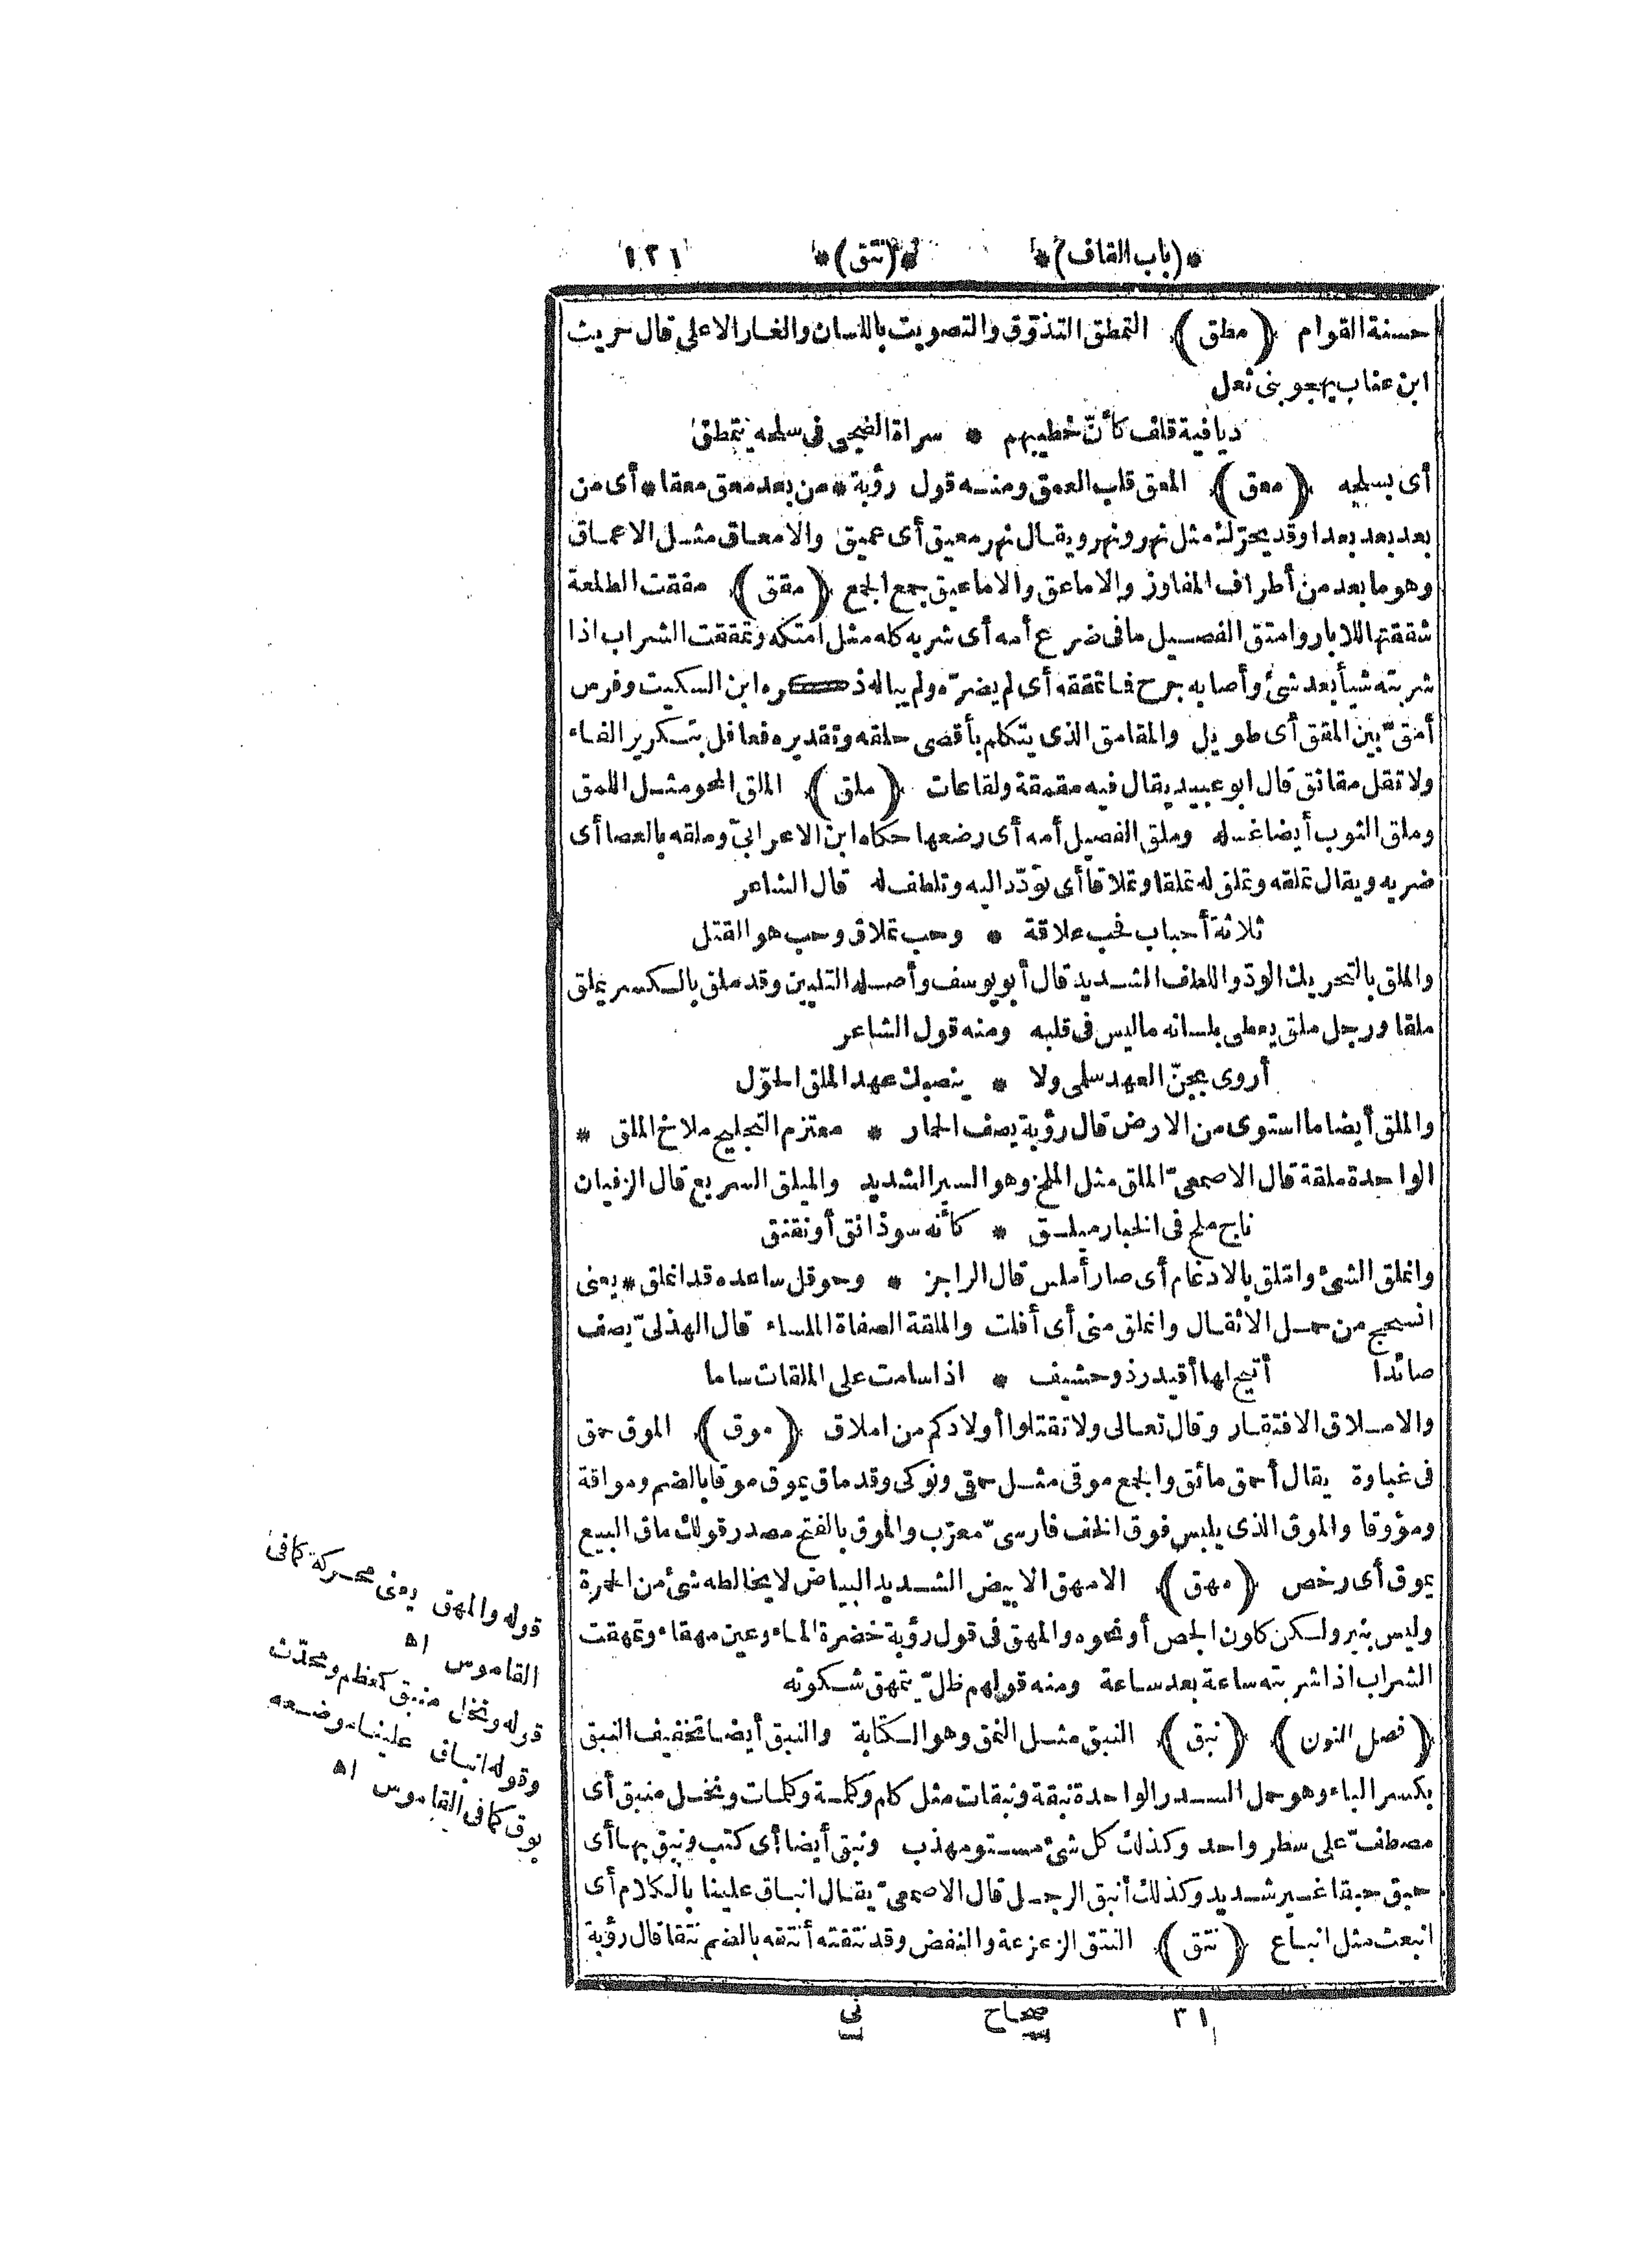 *(باب القاف)* *(نتق)* ١٢١
حسنة القوام ﴿مطق﴾ التمطق التذوّق والتصويت باللسان والغار الاعلى قال حريث
ابن عناب يهجو بنى ثعل
ديافية قلف كأنّ خطيبهم * سراة الضحى فى سلحه يتمطق
أى بسلحه ﴿معق﴾ المعق قلب العمق ومنه قول رؤبة * من بعد معق معقا * أى من
بعد بعد بعدا وقد يحرّك مثل نهر ونهر ويقال نهر معيق أى عميق والامعاق مثل الاعماق
وهو ما بعد من أطراف المفاوز والاماعق والاماعيق جمع الجمع ﴿مقق﴾ مققت الطلعة
شققتها للابار وامتق الفصيل ما فى ضرع أمه أى شربه كله مثل امتكه وتمققت الشراب اذا
شربته شيأ بعد شئ وأصابه جرح فما تمققه أى لم يضرّه ولم يباله ذكره ابن السكيت وفرس
أمقّ بين المقق أى طويل والمقامق الذى يتكلم بأقصى حلقه وتقديره فعافل بتكرير الفاء
ولا تقل مقانق قال ابو عبيد يقال فيه مقمقة ولقاعات ﴿ملق﴾ الملق المحو مثل اللمق
وملق الثوب أيضا غسله وملق الفصيل أمه أى رضعها حكاه ابن الاعرابىّ وملقه بالعصا أى
ضربه ويقال تملقه وتملق له تملقا وتملاقا أى تودّد اليه وتلطف له قال الشاعر
ثلاثة أحباب فحب علاقة * وحب تملاق وحب هو القتل
والملق بالتحريك الودّ واللطف الشديد قال أبو يوسف وأصله التليين وقد ملق بالكسر يملق
ملقا ورجل ملق يعطى بلسانه ما ليس فى قلبه ومنه قول الشاعر
أروى بجنّ العهد سلمى ولا * ينصبك عهد الملق الحوّل
والملق أيضا ما استوى من الارض قال رؤبة يصف الحمار * معتزم التجليح ملاخ الملق *
الواحدة ملقة قال الاصمعىّ الملق مثل الملخ وهو السير الشديد والميلق السريع قال الزفيان
ناج ملح فى الخبار ميلق * كأنه سوذانق أو نقنق
وانملق الشئ واملق بالادغام أى صار أملس قال الراجز * وحوقل ساعده قد انملق * يعنى
انسحج من حمل الاثقال وانملق منى أى أفلت والملقة الصفاة الملساء قال الهذلىّ يصف
صائدا أتيح لها أقيدر ذو حشيف * اذا سامت على الملقات ساما
والاملاق الافتقار وقال تعالى ولا تقتلوا أولادكم من املاق ﴿موق﴾ الموق حمق
فى غباوة يقال أحمق مائق والجمع موقى مثل حمقى ونوكى وقد ماق يموق موقا بالضم ومواقة
ومؤوقا والموق الذى يلبس فوق الخف فارسىّ معرّب والموق بالفتح مصدر قولك ماق البيع
يموق أى رخص ﴿مهق﴾ الامهق الابيض الشديد البياض لا يخالطه شئ من الحمرة
وليس بنير ولكن كلون الجص أو نحوه والمهق فى قول رؤبة خضرة الماء وعين مهقاء وتمهقت
الشراب اذا شربته ساعة بعد ساعة ومنه قولهم ظلّ يتمهق شكوته
﴿فصل النون﴾ ﴿نبق﴾ النبق مثل النمق وهو الكتابة والنبق أيضا تخفيف النبق
بكسر الباء وهو حمل السدر الواحدة نبقة ونبقات مثل كلم وكلمة وكلمات ونخل منبق أى
مصطفّ على سطر واحد وكذلك كل شئ مستو مهذب ونبق أيضا أى كتب ونبق بها أى
حبق حبقا غير شديد وكذلك أنبق الرجل قال الاصمعىّ يقال انباق علينا بالكلام أى
انبعث مثل انباع ﴿نتق﴾ النتق الزعزعة والنفض وقد نتقته أنتقه بالضم نتقا قال رؤبة
٣١ صحاح نى
قوله والمهق يعنى محركة كما فى
القاموس اه
قوله ونخل منبق كمعظم ومحدّث
وقوله انباق علينا موضعه
بوق كما فى القاموس اه